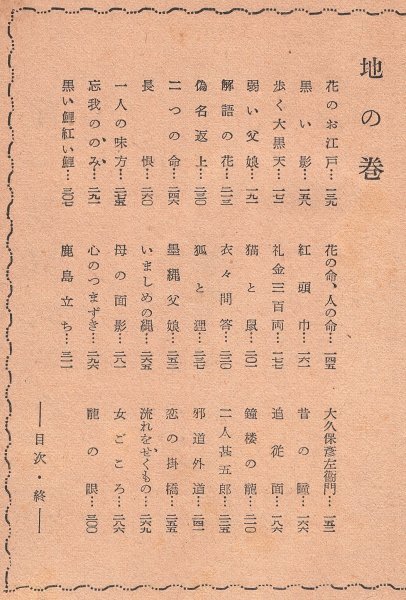 地の巻
花のお江戸…一三九
花の命、人の命…一四五
大久保彦左衛門…一五二
黒い影…一五八
紅頭巾…一六一
昔の瞳…一六六
歩く大黒天…一七二
礼金三百両…一七七
追従面…一八六
弱い父娘…一九一
猫と鼠…二〇一
鐘楼の龍…二一〇
解語の花…二一三
衣々問答…二二〇
二人甚五郎…二二五
偽名返上…二三〇
狐と狸…二三七
邪道外道…二四一
二つの命…二四六
墨縄父娘…二五二
恋の掛橋…二五五
長恨…二六〇
いましめの縄…二六五
流れをせくもの…二六九
一人の味方…二七五
母の面影…二八一
女ごころ…二八六
忘我ののみ…二九一
心のつまずき…二九六
龍の眼…三〇〇
黒い鯉紅い鯉…三〇七
鹿島立ち…三一一
――目次・終――